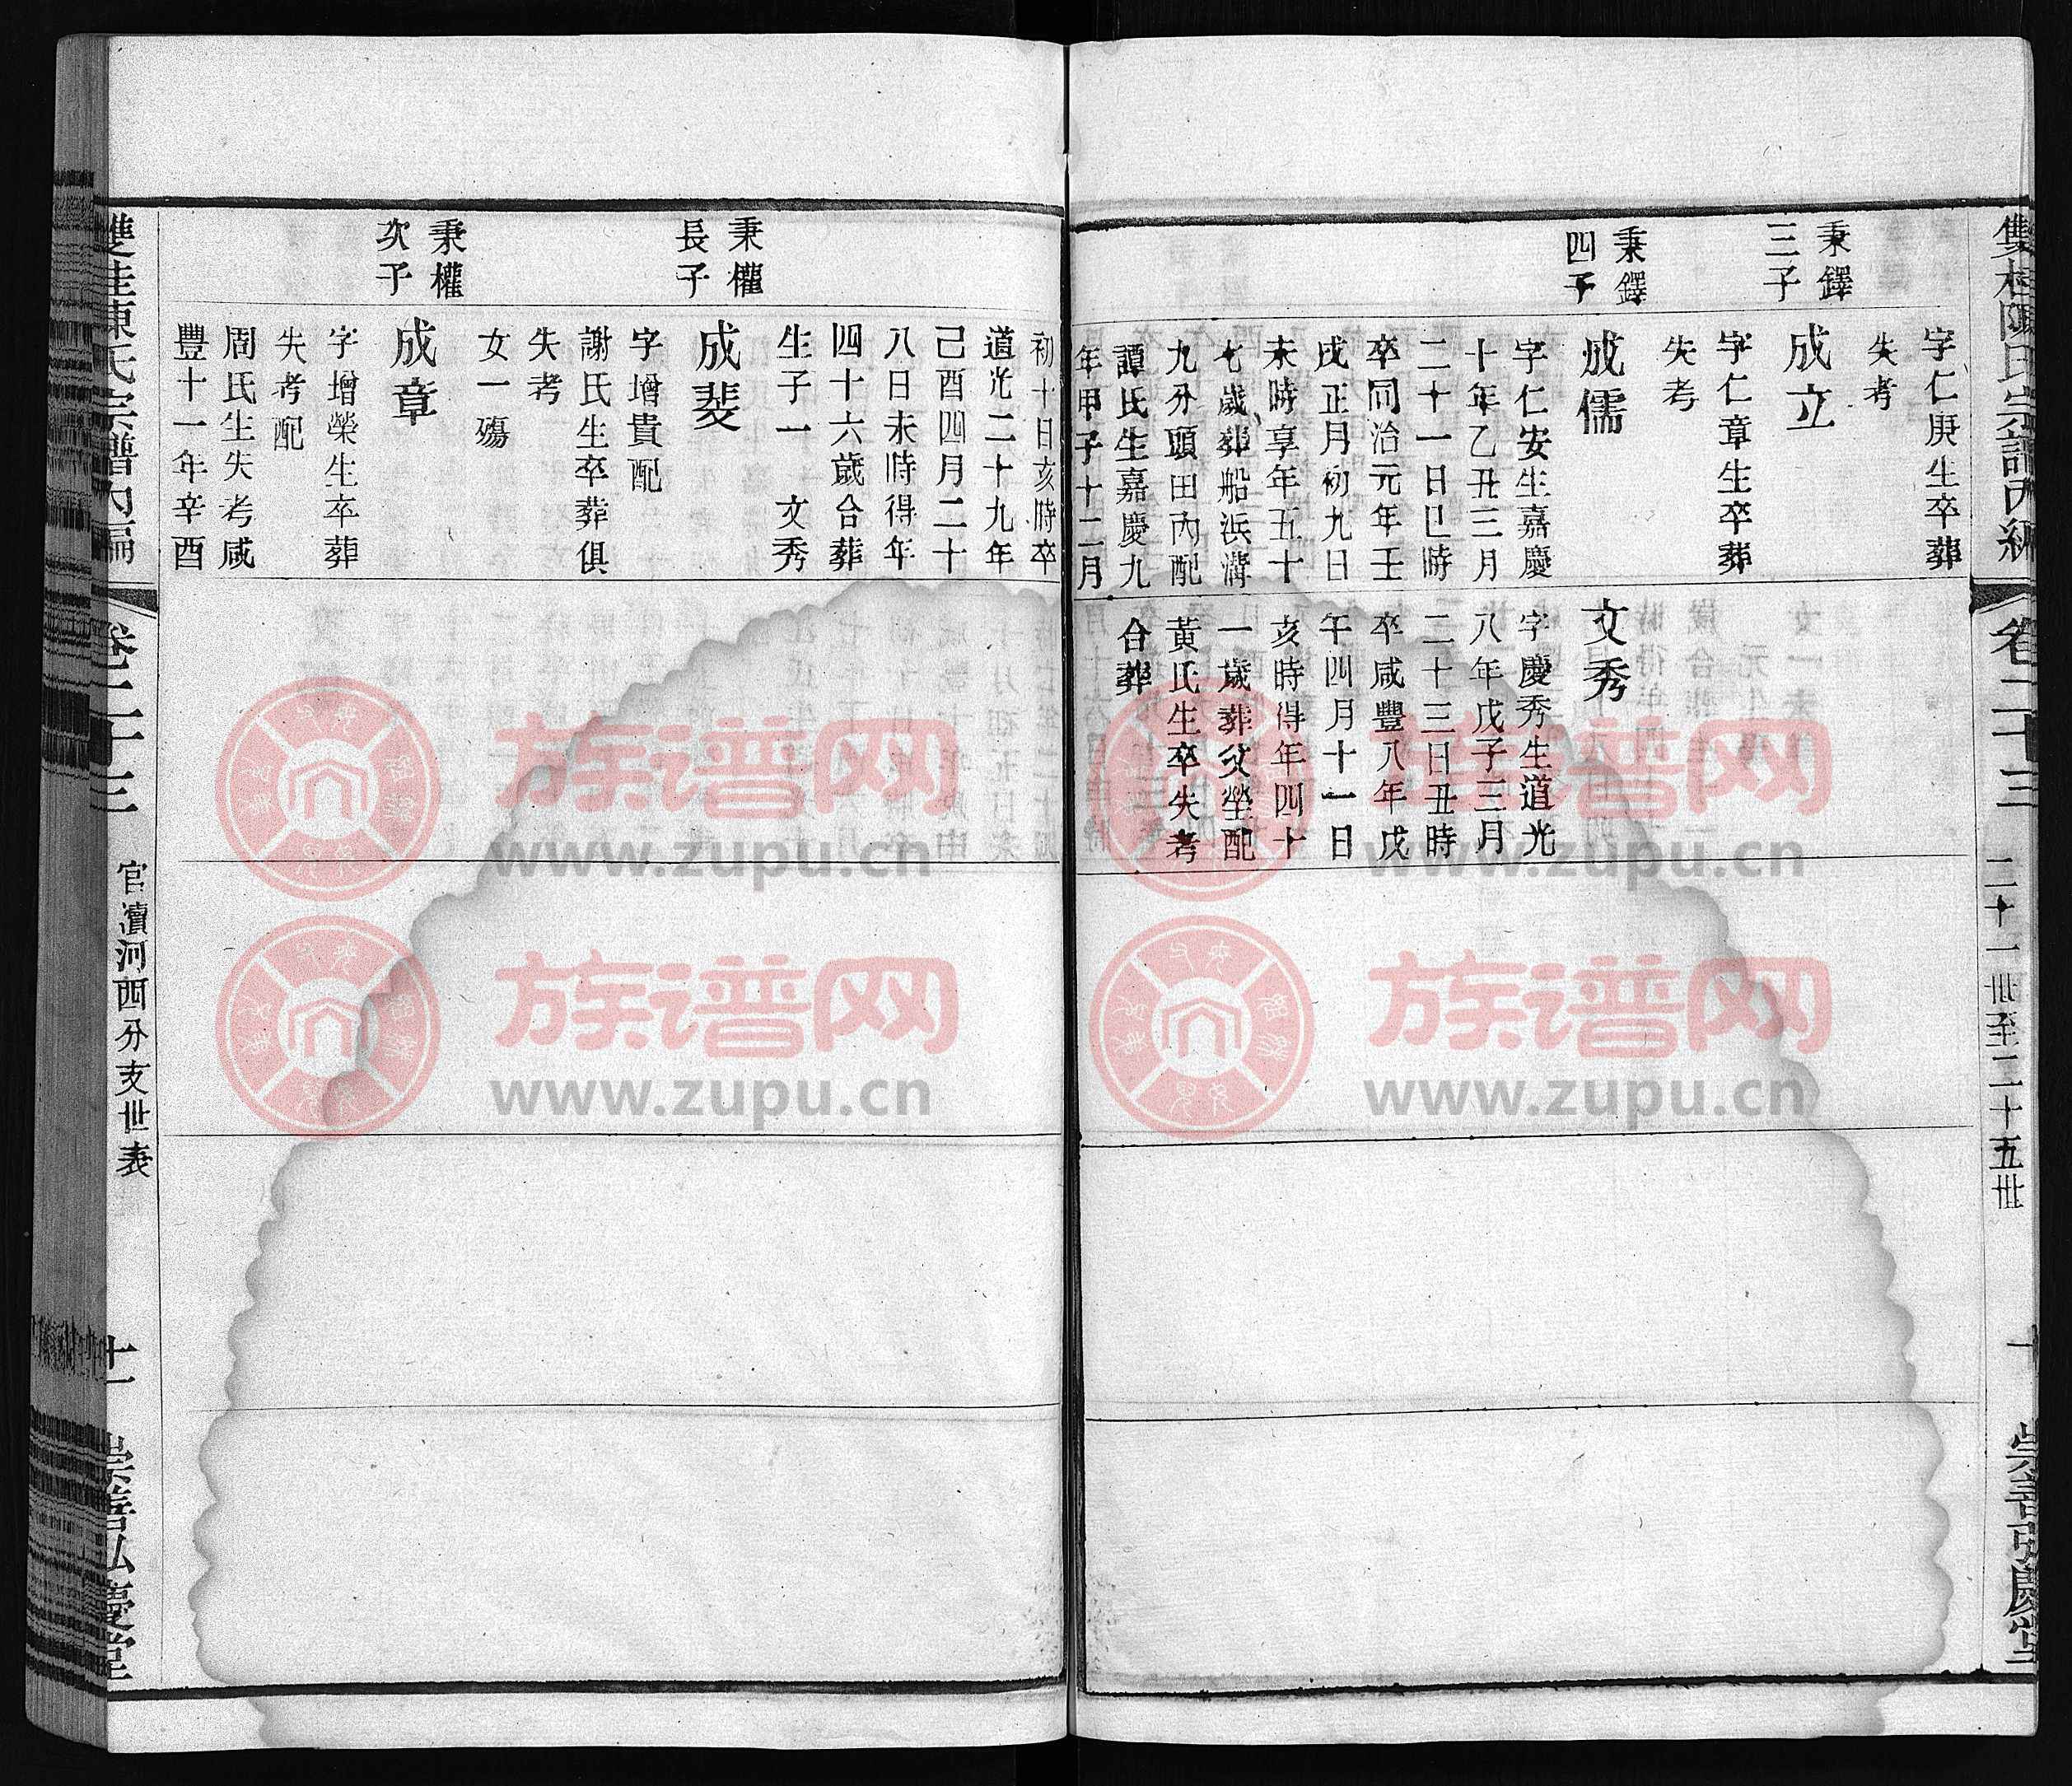 雙桂陳氏宗譜內編
卷二十三
二十一卅至二十五卅
十
崇善弘慶堂
字仁庚生卒葬
失考
秉鐸
三子
成立
字仁章生卒葬
失考
秉鐸
四子
成儒
字仁安生嘉慶
十年乙丑三月
二十一日巳時
卒同治元年壬
戌正月初九日
未時享年五十
七歲葬船浜溝
九分頭田內配
譚氏生嘉慶九
年甲子十二月
文秀
字慶秀生道光
八年戊子三月
二十三日丑時
卒咸豐八年戊
午四月十一日
亥時得年四十
一歲葬父塋配
黃氏生卒失考
合葬
初十日亥時卒
道光二十九年
己酉四月二十
八日未時得年
四十六歲合葬
生子一 文秀
秉權
長子
成斐
字增貴配
謝氏生卒葬俱
失考
女一殤
秉權
次子
成章
字增榮生卒葬
失考配
周氏生失考咸
豐十一年辛酉
雙桂陳氏宗譜內編
卷二十三
官瀆河西分支世表
十一
崇善弘慶堂
族谱网
www.zupu.cn
族谱网
www.zupu.cn
族谱网
www.zupu.cn
族谱网
www.zupu.cn